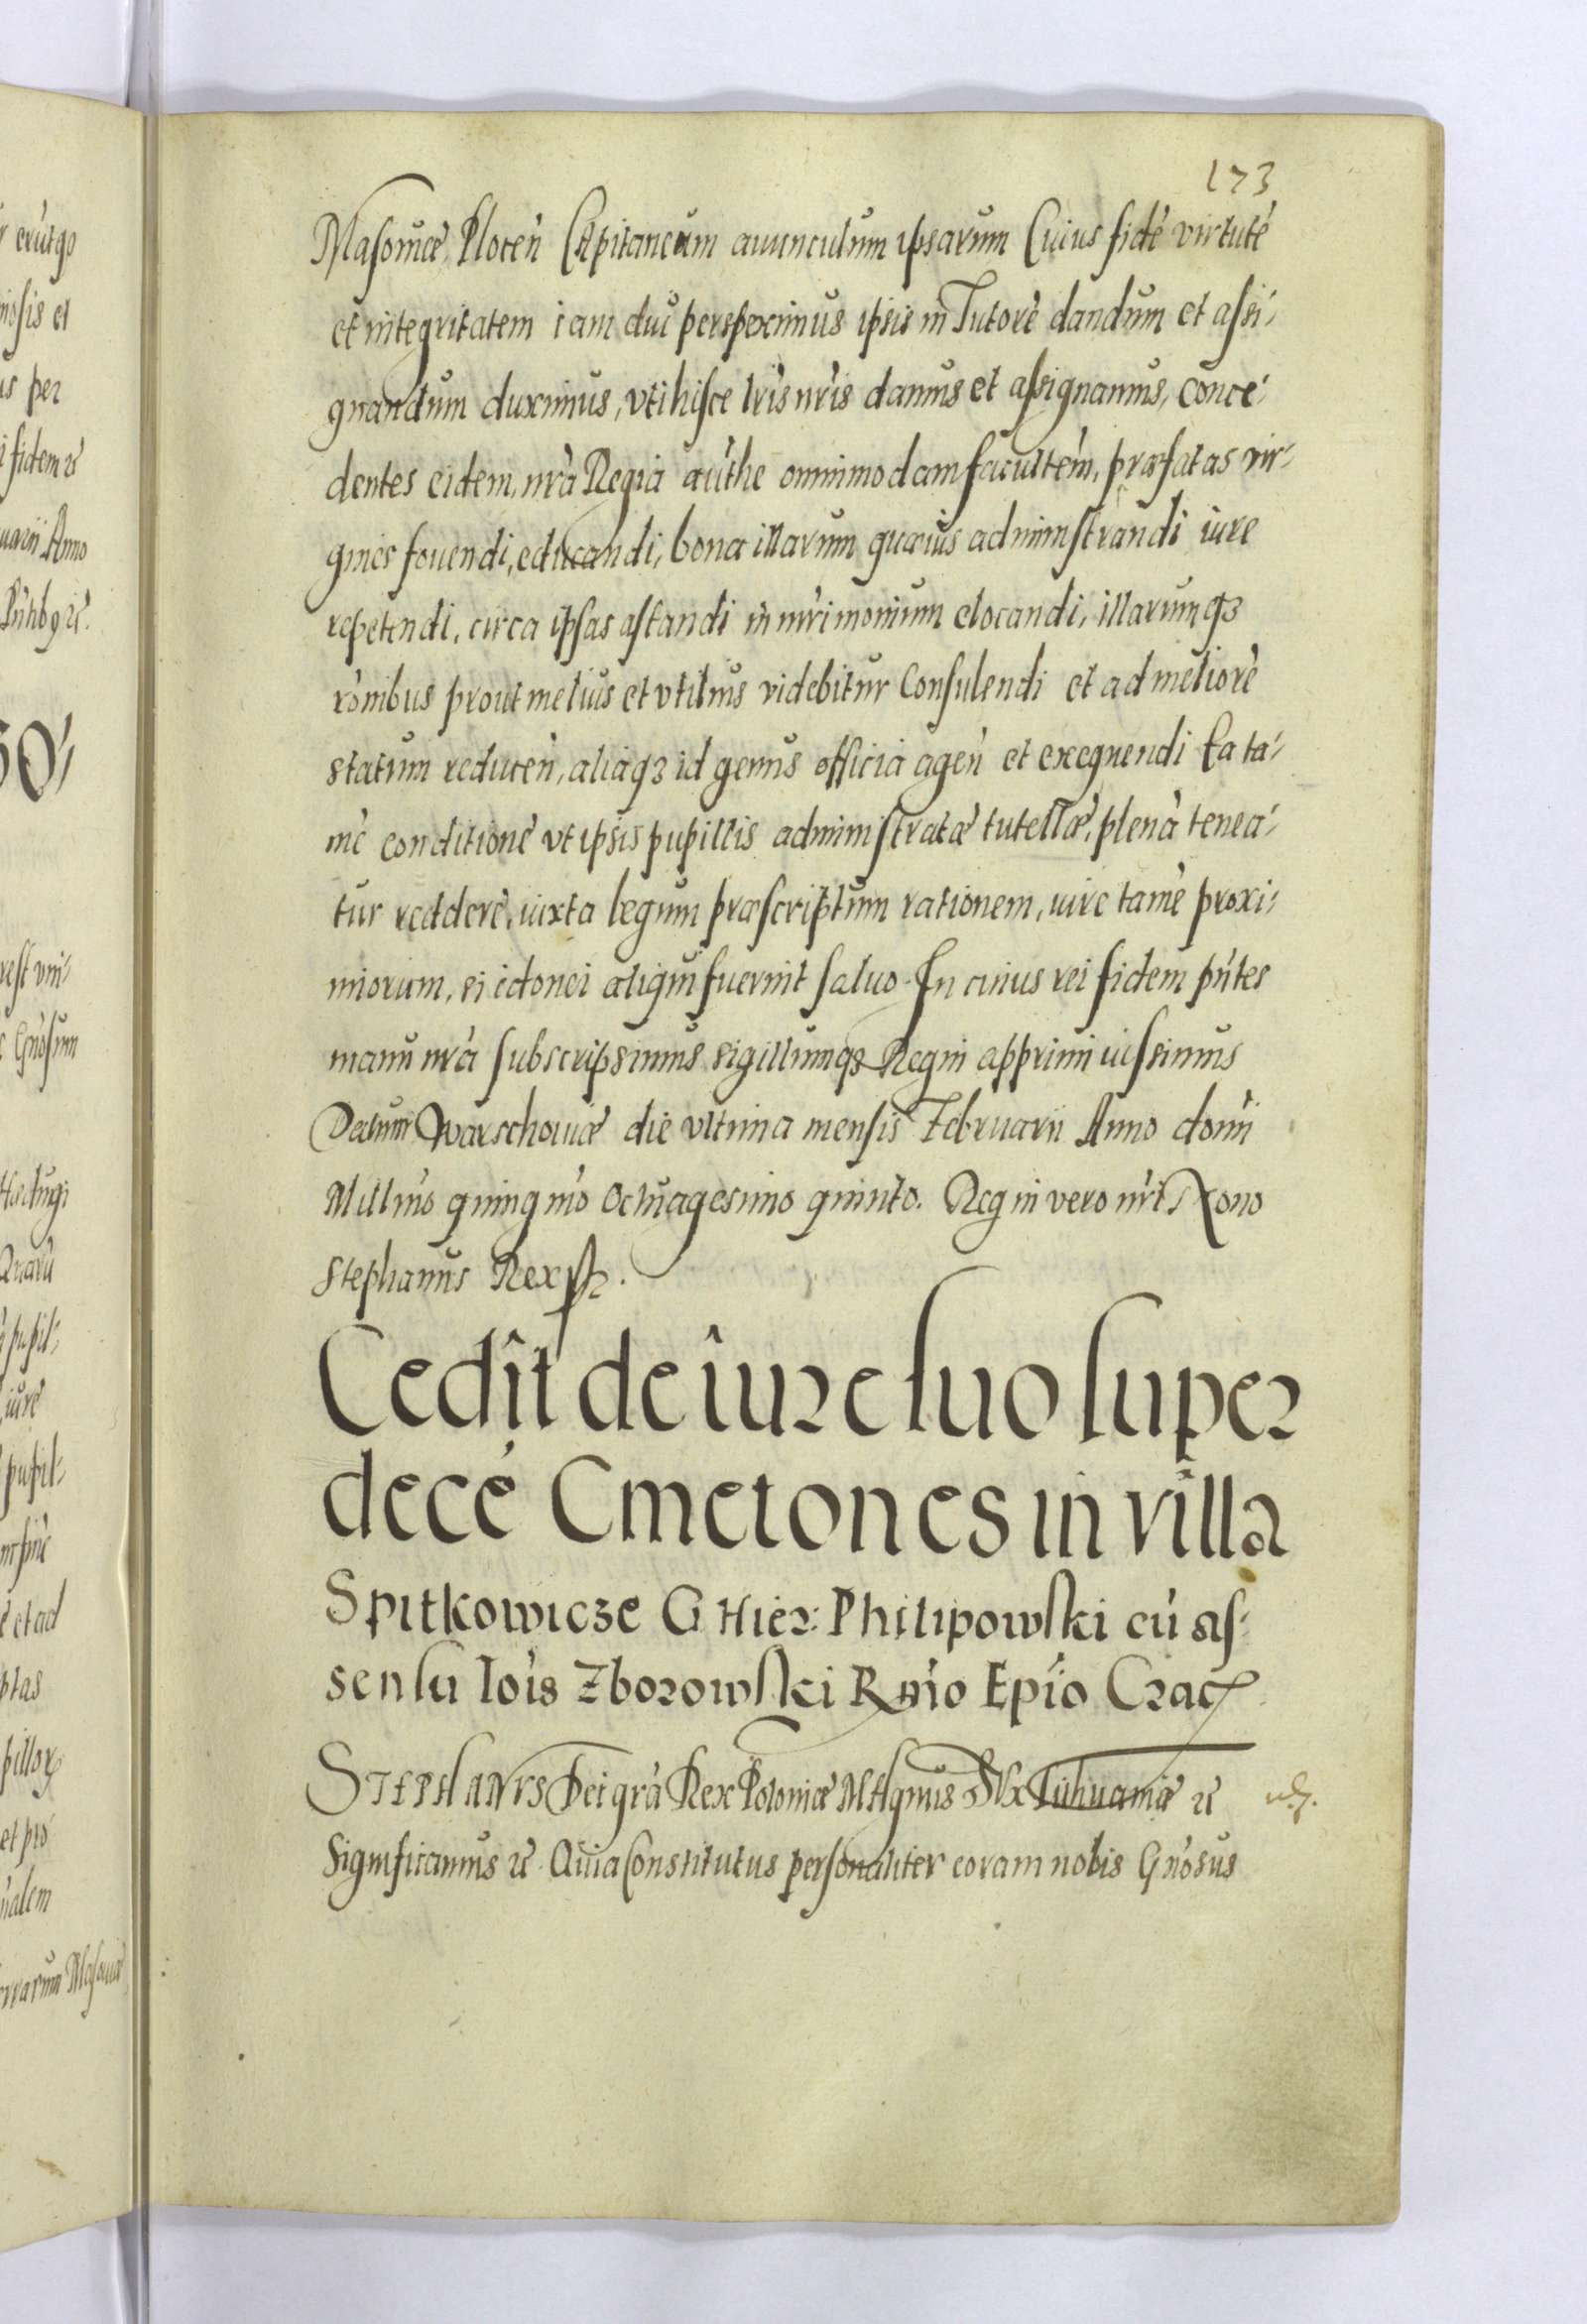 173
Masoviæ Plocen̄ Capitaneum avunculum ipsarum Cuius fidē virtutē
et integritatem iam diu perspeximus ipsis in Tutorē dandum et assi-
gnandum duximus, uti hisce lr̄is nr̄is damus et assignamus, conce-
dentes eidem, nrā Regia autħe omnimodam facultēm, præfatas vir-
gines fovendi, educandi, bona illarum quævis administrandi iure
repetendi, circa ipsas astandi in mr̄imonium elocandi, illarumqȝ
rōnibus prout melius et utilius videbitur Consulendi et ad meliorē
statum reducen̄, aliaqȝ id genus officia agen̄ et exequendi Ea ta-
mē conditionē ut ipsis pupillis administratæ tutellæ, plenā tenea-
tur reddere, iuxta legum præscriptum rationem, iure tamē proxi-
miorum, si idonei aliqui fuerint salvo. In cuius rei fidem pn̄tes
manu nrā subscripsimus sigillumqȝ Regni apprimi iussimus
Datum Warschoviæ die ultima mensis Februarii Anno domi
Millmo quingmo Octuagesimo quinto. Regni vero nr̄i Nono
Stephanus Rex sst.
Cedit de iure suo super
decē Cmetones in villa
Spitkowicze G Hier: Philipowski cū as-
sensu Iois Zborowski Rn̄io Ep̄io Crac
STEPHANVS Dei grā Rex Poloniæ Magnus Dux Lithuaniæ &
Significamus & Quia Constitutus personaliter coram nobis Gn̄osus